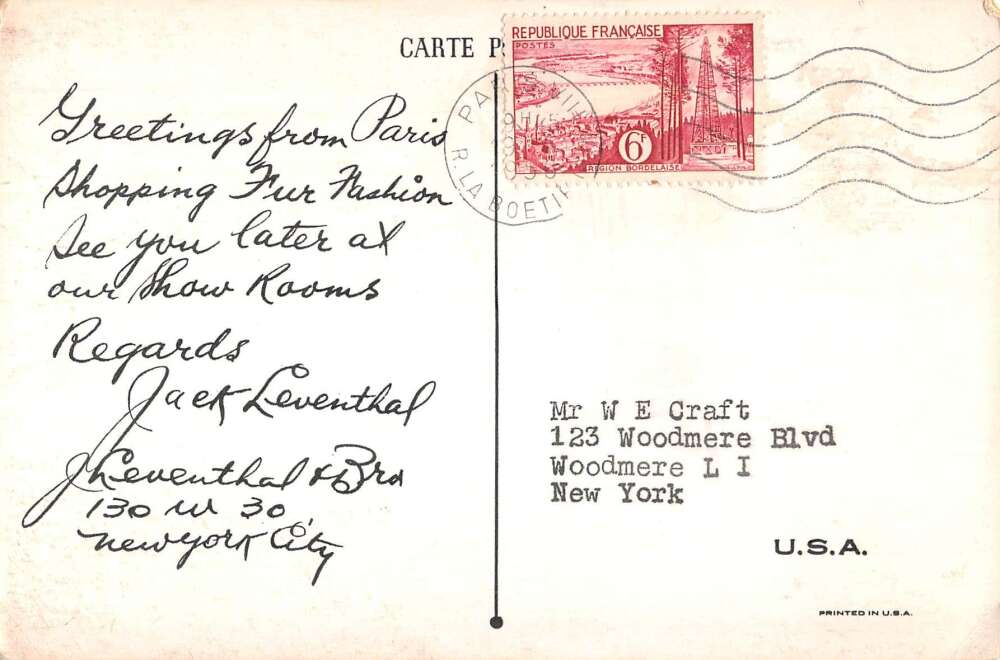 CARTE P
REPUBLIQUE FRANÇAISE
POSTES
6F
REGION BORDELAISE
PARIS VIII
R. LA BOETIE
Greetings from Paris
Shopping Fur Fashion
See you later at
our Show Rooms
Regards
Jack Leventhal
J Leventhal & Bro
130 W 30
New York City
Mr W E Craft
123 Woodmere Blvd
Woodmere L I
New York
U.S.A.
PRINTED IN U.S.A.